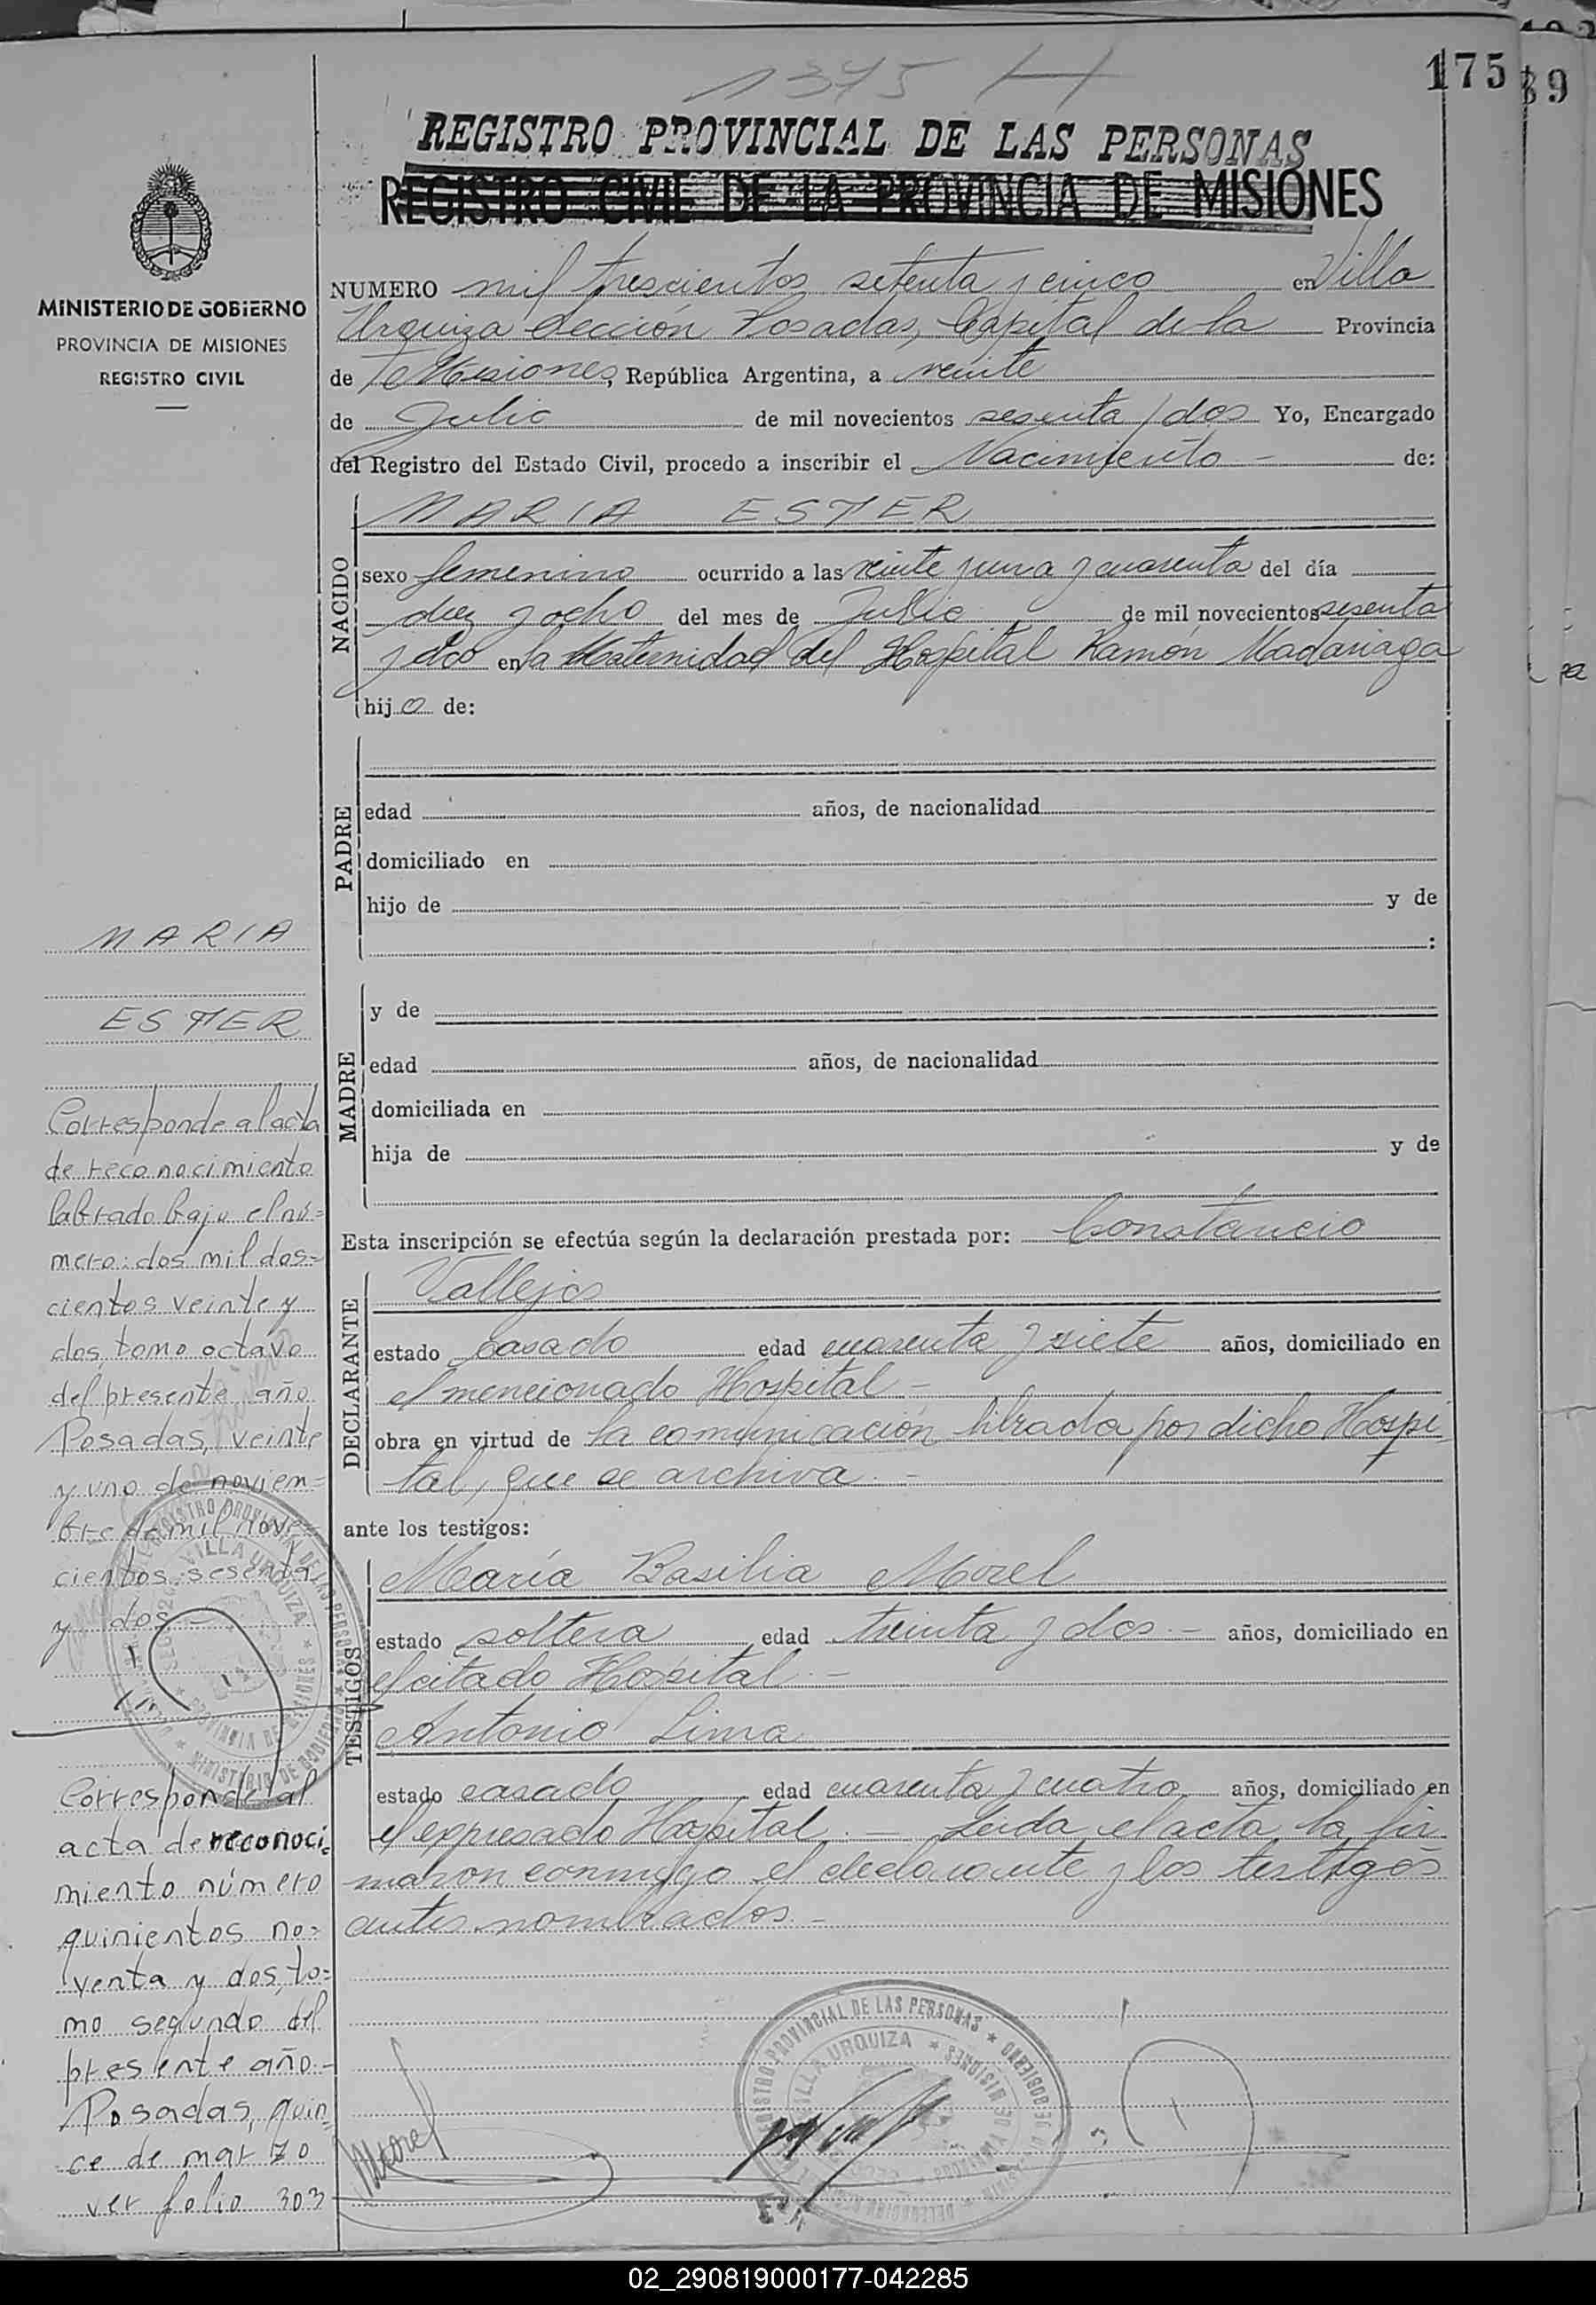 1375 H
175
39
REGISTRO PROVINCIAL DE LAS PERSONAS
REGISTRO CIVIL DE LA PROVINCIA DE MISIONES
MINISTERIO DE GOBIERNO
PROVINCIA DE MISIONES
REGISTRO CIVIL
NUMERO mil trescientos setenta y cinco en Villa
Urquiza Sección Posadas, Capital de la Provincia
de Misiones, República Argentina, a veinte
de Julio de mil novecientos sesenta y dos Yo, Encargado
del Registro del Estado Civil, procedo a inscribir el Nacimiento - de:
NACIDO
MARIA ESTER
sexo femenino ocurrido a las veinte y una y cuarenta del día
diez y ocho del mes de Julio de mil novecientos sesenta
y dos en la Maternidad del Hospital Ramón Madariaga
hij a de:
PADRE
edad años, de nacionalidad
domiciliado en
hijo de y de
:
MADRE
y de
edad años, de nacionalidad
domiciliada en
hija de y de
Esta inscripción se efectúa según la declaración prestada por: Constancio
DECLARANTE
Vallejos
estado casado edad cuarenta y siete años, domiciliado en
el mencionado Hospital -
obra en virtud de la comunicación librada por dicho Hospi
tal, que se archiva. -
ante los testigos:
TESTIGOS
María Basilia Morel
estado soltera edad treinta y dos - años, domiciliado en
el citado Hospital -
Antonio Lima
estado casado edad cuarenta y cuatro años, domiciliado en
el expresado Hospital. - Leida el acta, la fir
maron conmigo el declarante y los testigos
antes nombrados. -
MARIA
ESTER
Corresponde al acta
de reconocimiento
labrado bajo el nú=
mero: dos mil dos=
cientos veinte y
dos, tomo octavo
del presente año
Posadas, veinte
y uno de noviem=
bre de mil nove
cientos sesenta
y dos -
Corresponde al
acta de reconoci=
miento número
quinientos no=
venta y dos, to=
mo segundo del
presente año. -
Posadas, quin
ce de mar 70
ver folio 303
REGISTRO PROVINCIAL DE LAS PERSONAS
VILLA URQUIZA
PROVINCIA DE MISIONES
MINISTERIO DE GOBIERNO
REGISTRO PROVINCIAL DE LAS PERSONAS
VILLA URQUIZA
PROVINCIA DE MISIONES
Morel
02_290819000177-042285